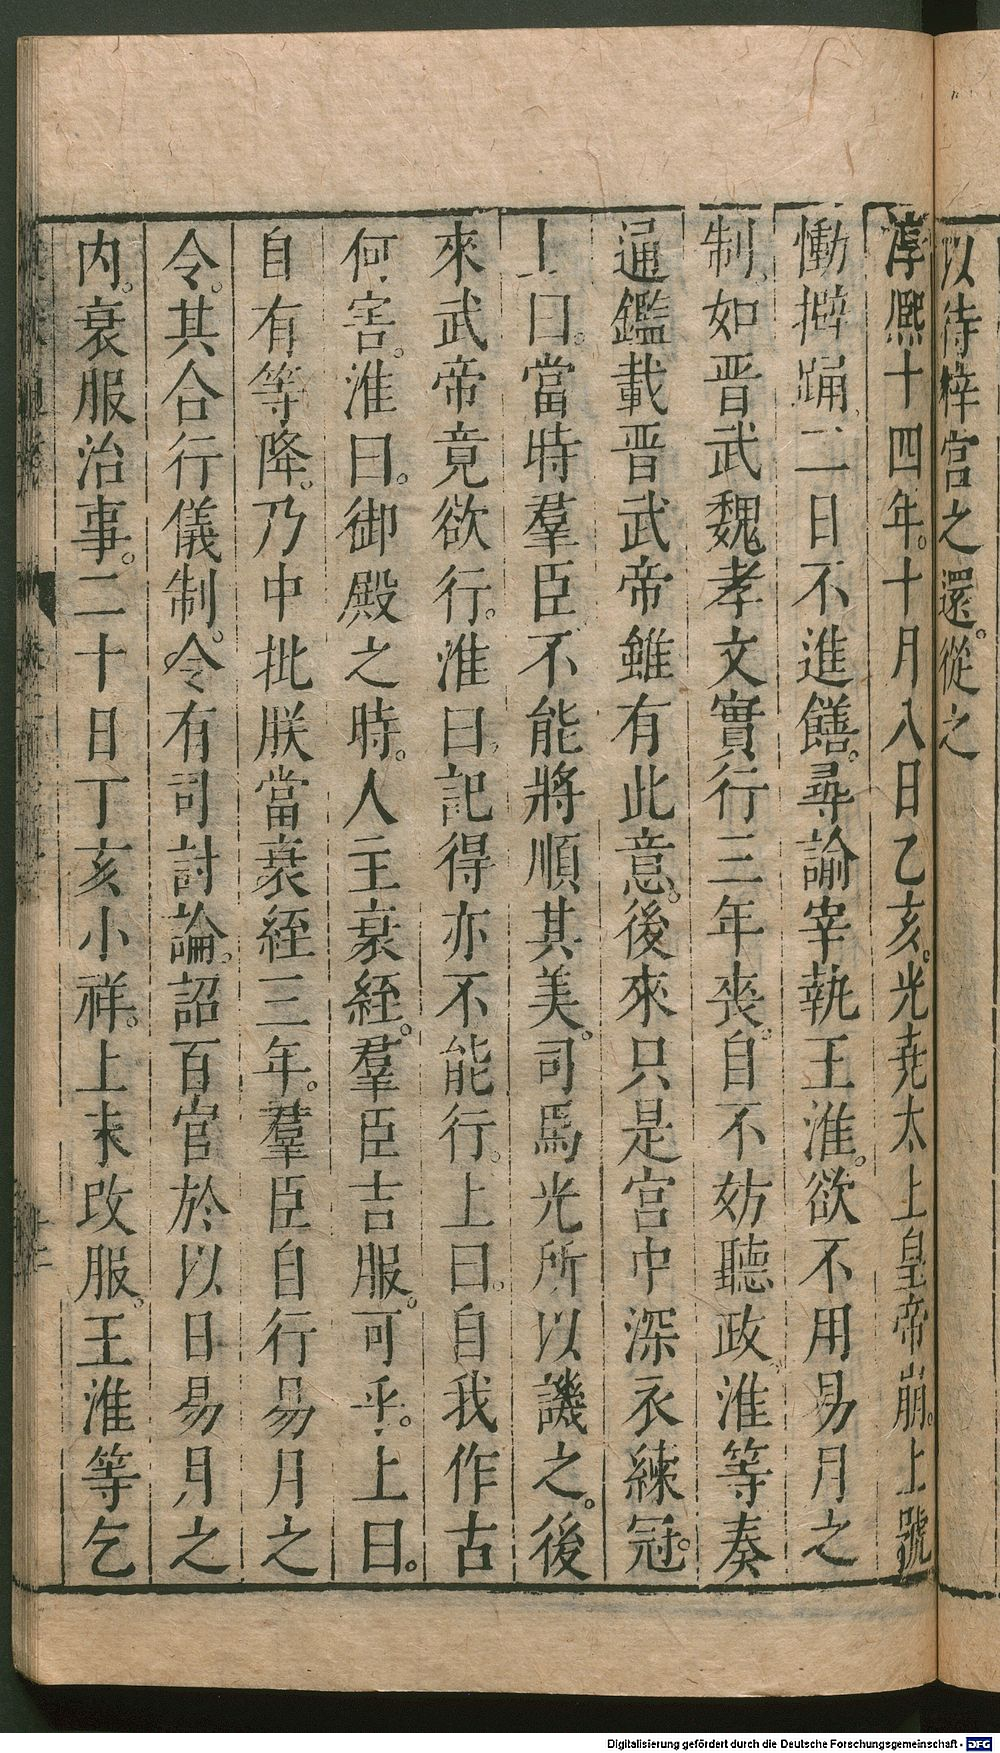 以待梓宮之還。從之
淳熈十四年。十月八日乙亥。光堯太上皇帝崩。上號
慟擗踊。二日不進饍。尋諭宰執王淮。欲不用易月之
制。如晋武魏孝文實行三年喪。自不妨聽政。淮等奏
通鑑載晋武帝雖有此意。後來只是宮中深衣練冠。
上曰。當時羣臣不能將順其美。司馬光所以譏之。後
來武帝竟欲行。淮曰。記得亦不能行。上曰。自我作古
何害。淮曰。御殿之時。人主衰絰。羣臣吉服。可乎。上曰。
自有等降。乃中批朕當衰絰三年。羣臣自行易月之
令。其合行儀制。令有司討論。詔百官於以日易月之
内。衰服治事。二十日丁亥小祥。上未改服。王淮等乞
Digitalisierung gefördert durch die Deutsche Forschungsgemeinschaft - DFG